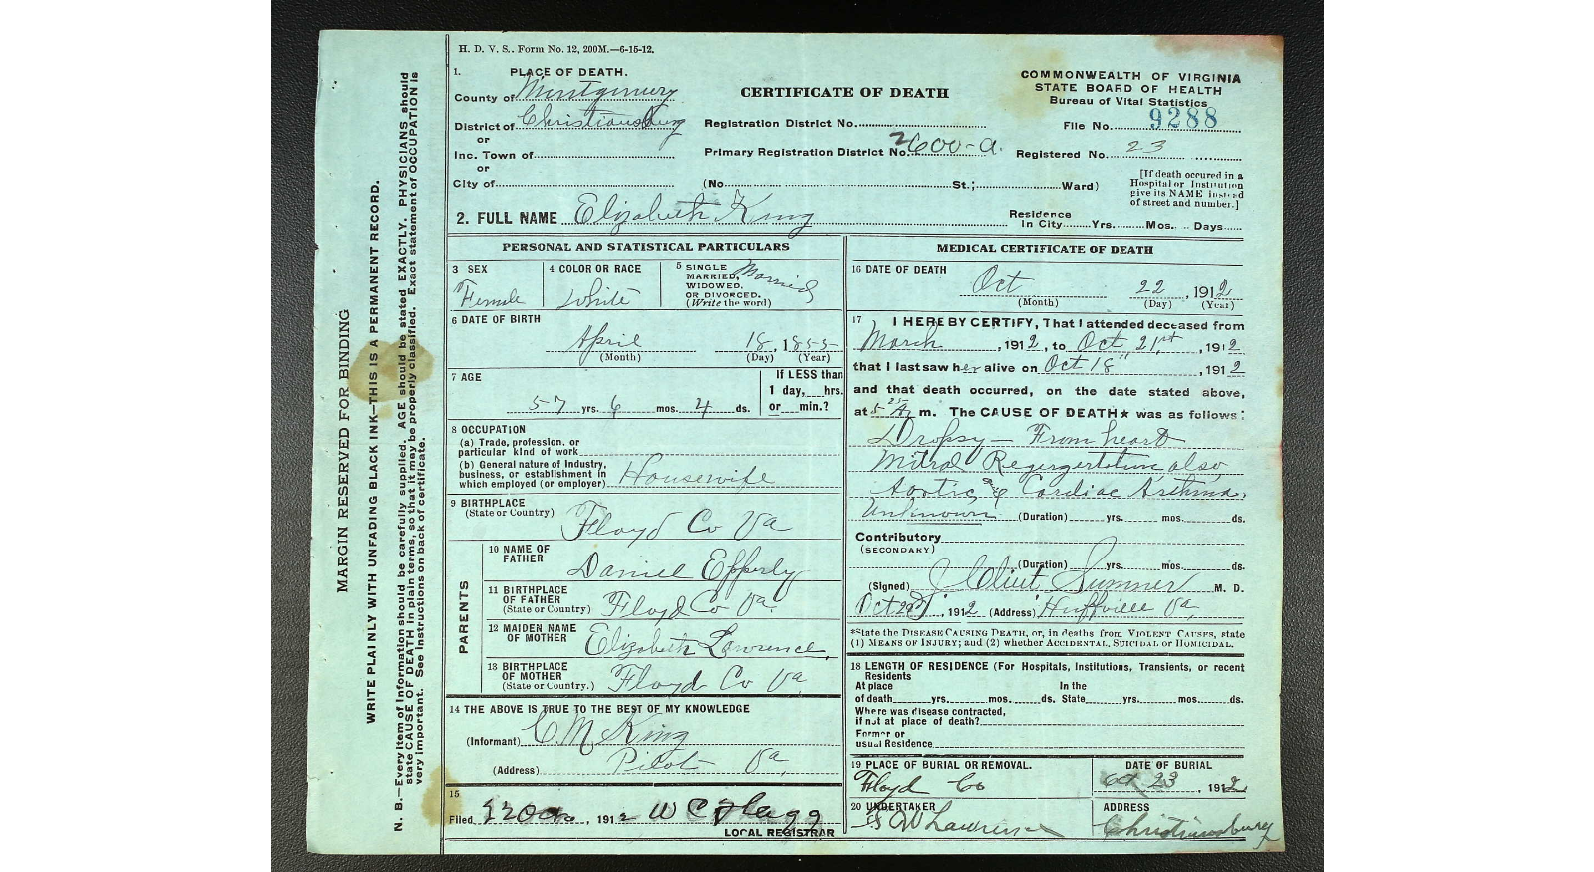 H. D. V. S.. Form No. 12, 200M.—6-15-12.
1. PLACE OF DEATH.
County of Montgomery
District of Christiansburg
or
Inc. Town of
or
City of
CERTIFICATE OF DEATH
Registration District No.
Primary Registration District No. 2600-a.
(No. St.; Ward)
COMMONWEALTH OF VIRGINIA
STATE BOARD OF HEALTH
Bureau of Vital Statistics
File No. 9288
Registered No. 23
[If death occured in a
Hospital or Institution
give its NAME instead
of street and number.]
2. FULL NAME Elizabeth King
Residence
In City Yrs. Mos. Days
PERSONAL AND STATISTICAL PARTICULARS
3 SEX
Female
4 COLOR OR RACE
White
5 SINGLE
MARRIED,
WIDOWED.
OR DIVORCED.
(Write the word)
Married
6 DATE OF BIRTH
April 18, 1855
(Month) (Day) (Year)
7 AGE
57 yrs. 6 mos. 4 ds.
If LESS than
1 day, hrs.
or min.?
8 OCCUPATION
(a) Trade, profession. or
particular kind of work
(b) General nature of Industry,
business, or establishment in
which employed (or employer) Housewife
9 BIRTHPLACE
(State or Country) Floyd Co Va
PARENTS
10 NAME OF
FATHER Daniel Epperly
11 BIRTHPLACE
OF FATHER
(State or Country) Floyd Co Va.
12 MAIDEN NAME
OF MOTHER Elizabeth Lawrence
13 BIRTHPLACE
OF MOTHER
(State or Country.) Floyd Co Va
14 THE ABOVE IS TRUE TO THE BEST OF MY KNOWLEDGE
(Informant) C. M. King
(Address) Pilot Va
15
Filed , 1912 W C Flagg
LOCAL REGISTRAR
MEDICAL CERTIFICATE OF DEATH
16 DATE OF DEATH
Oct 22, 1912
(Month) (Day) (Year)
17 I HEREBY CERTIFY, That I attended deceased from
March, 1912, to Oct 21st, 1912
that I last saw her alive on Oct 18", 1912
and that death occurred, on the date stated above,
at 5 25 A. m. The CAUSE OF DEATH* was as follows:
Dropsy — From heart
Mitral Regurgertation also
Aortic & Cardiac Asthma.
Unknown (Duration) yrs. mos. ds.
Contributory
(SECONDARY)
(Duration) yrs. mos. ds.
(Signed) Clint Sumner M. D.
Oct 22d, 1912 (Address) Huffville Va.
*State the DISEASE CAUSING DEATH, or, in deaths from VIOLENT CAUSES, state
(1) MEANS OF INJURY; and (2) whether ACCIDENTAL, SUICIDAL or HOMICIDAL.
18 LENGTH OF RESIDENCE (For Hospitals, Institutions, Transients, or recent
Residents
At place In the
of death yrs. mos. ds. State yrs. mos. ds.
Where was disease contracted,
if not at place of death?
Former or
usual Residence
19 PLACE OF BURIAL OR REMOVAL.
Floyd Co
DATE OF BURIAL
Oct 23, 1912
20 UNDERTAKER
W Lawrence
ADDRESS
Christiansburg
MARGIN RESERVED FOR BINDING
WRITE PLAINLY WITH UNFADING BLACK INK—THIS IS A PERMANENT RECORD.
N. B.—Every item of information should be carefully supplied. AGE should be stated EXACTLY. PHYSICIANS should
state CAUSE OF DEATH in plain terms, so that it may be properly classified. Exact statement of OCCUPATION is
very important. See instructions on back of certificate.